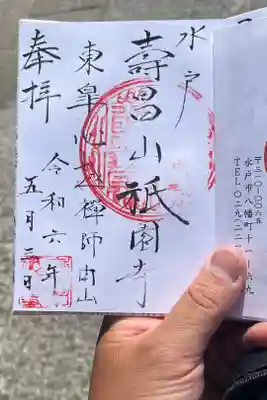 〒三一〇-〇〇六五
水戸市八幡町十一-六九
TEL〇二九(二二一
水戸
壽昌山祇園寺
東皐心越禪師開山
奉拝
令和六年
五月三日